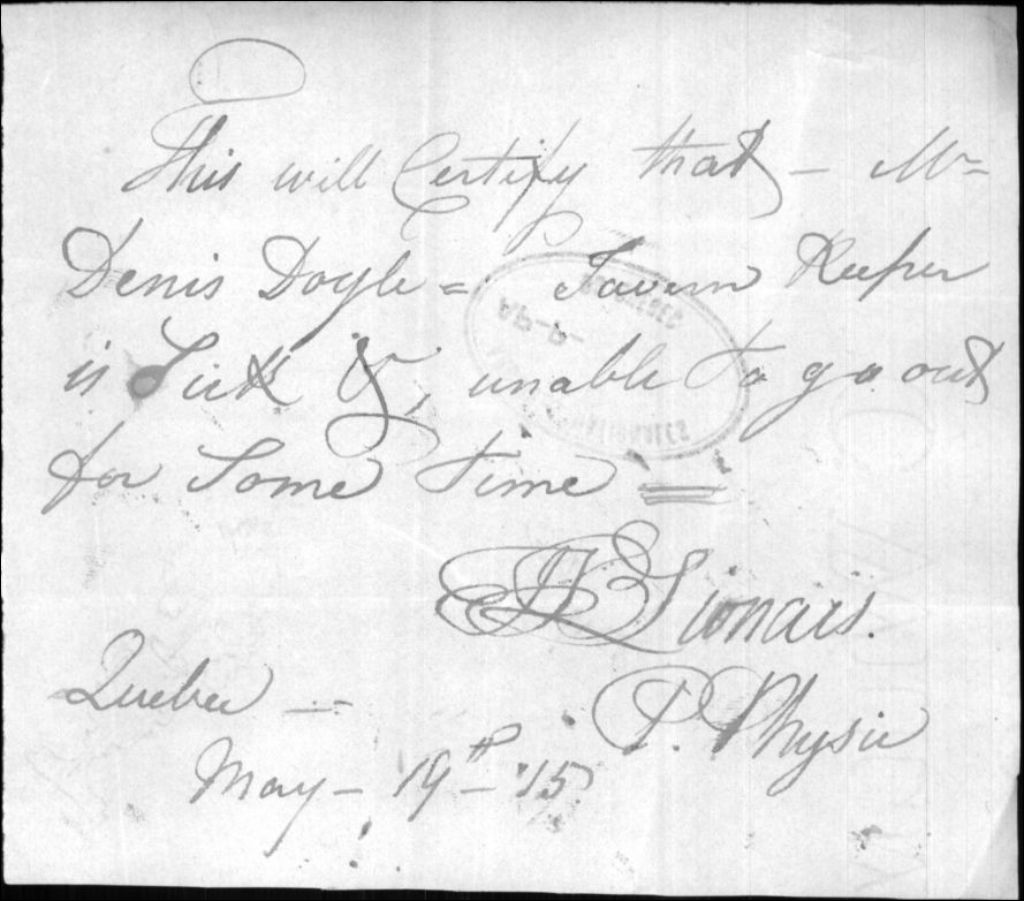 This will Certify that – Mr
Denis Doyle = Tavern Keeper
is Sick &, unable to go out
for Some Time =
Lionais.
P. Physic
Quebec —
May – 19th – '15